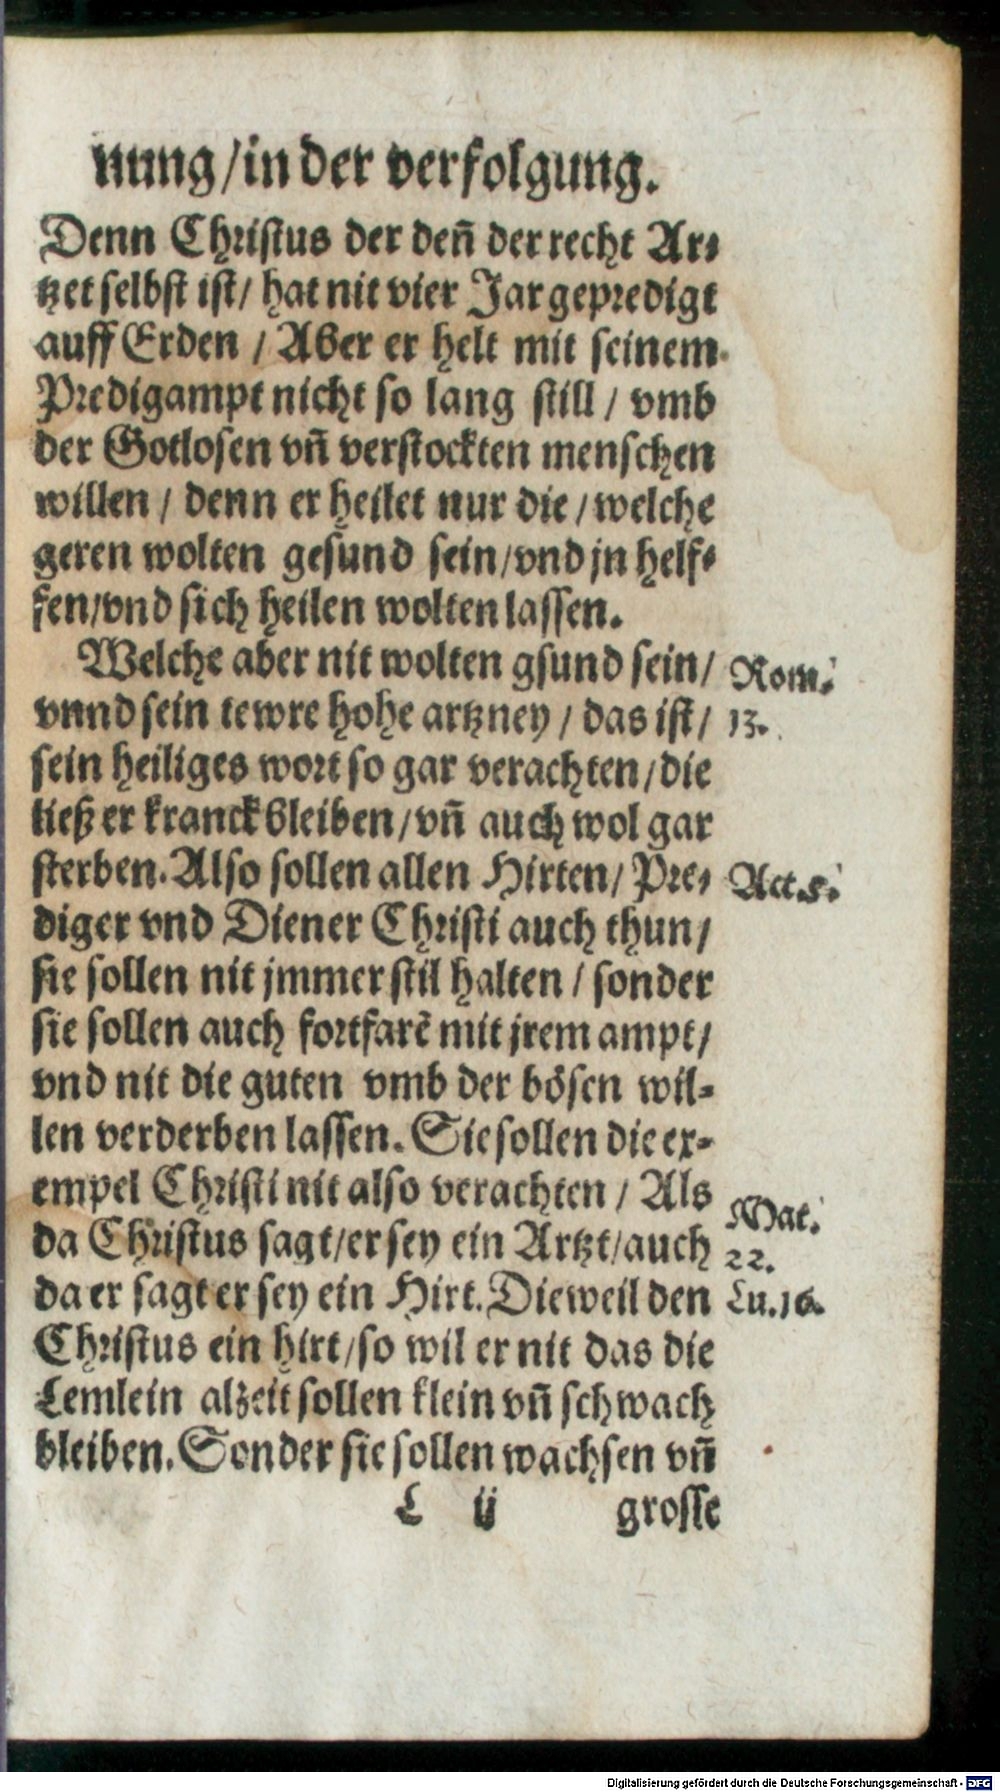 nung/in der verfolgung.
Denn Christus der deñ der recht Ar⸗
tzet selbst ist/ hat nit vier Jar gepredigt
auff Erden / Aber er helt mit seinem
Predigampt nicht so lang still / vmb
der Gotlosen vñ verstockten menschen
willen / denn er heilet nur die / welche
geren wolten gesund sein/vnd jn helf⸗
fen/vnd sich heilen wolten lassen.
Welche aber nit wolten gsund sein/
Rom.
vnnd sein tewre hohe artzney / das ist/
13.
sein heiliges wort so gar verachten/die
ließ er kranck bleiben/vñ auch wol gar
sterben. Also sollen allen Hirten/ Pre⸗
Act.5.
diger vnd Diener Christi auch thun/
sie sollen nit jmmer stil halten / sonder
sie sollen auch fortfarē mit jrem ampt/
vnd nit die guten vmb der bösen wil⸗
len verderben lassen. Sie sollen die ex⸗
empel Christi nit also verachten / Als
Mat.
da Christus sagt/er sey ein Artzt/auch
22.
da er sagt er sey ein Hirt. Dieweil den
Lu.16.
Christus ein hirt/so wil er nit das die
Lemlein alzeit sollen klein vñ schwach
bleiben. Sonder sie sollen wachsen vñ
L ij grosse
Digitalisierung gefördert durch die Deutsche Forschungsgemeinschaft - DFG